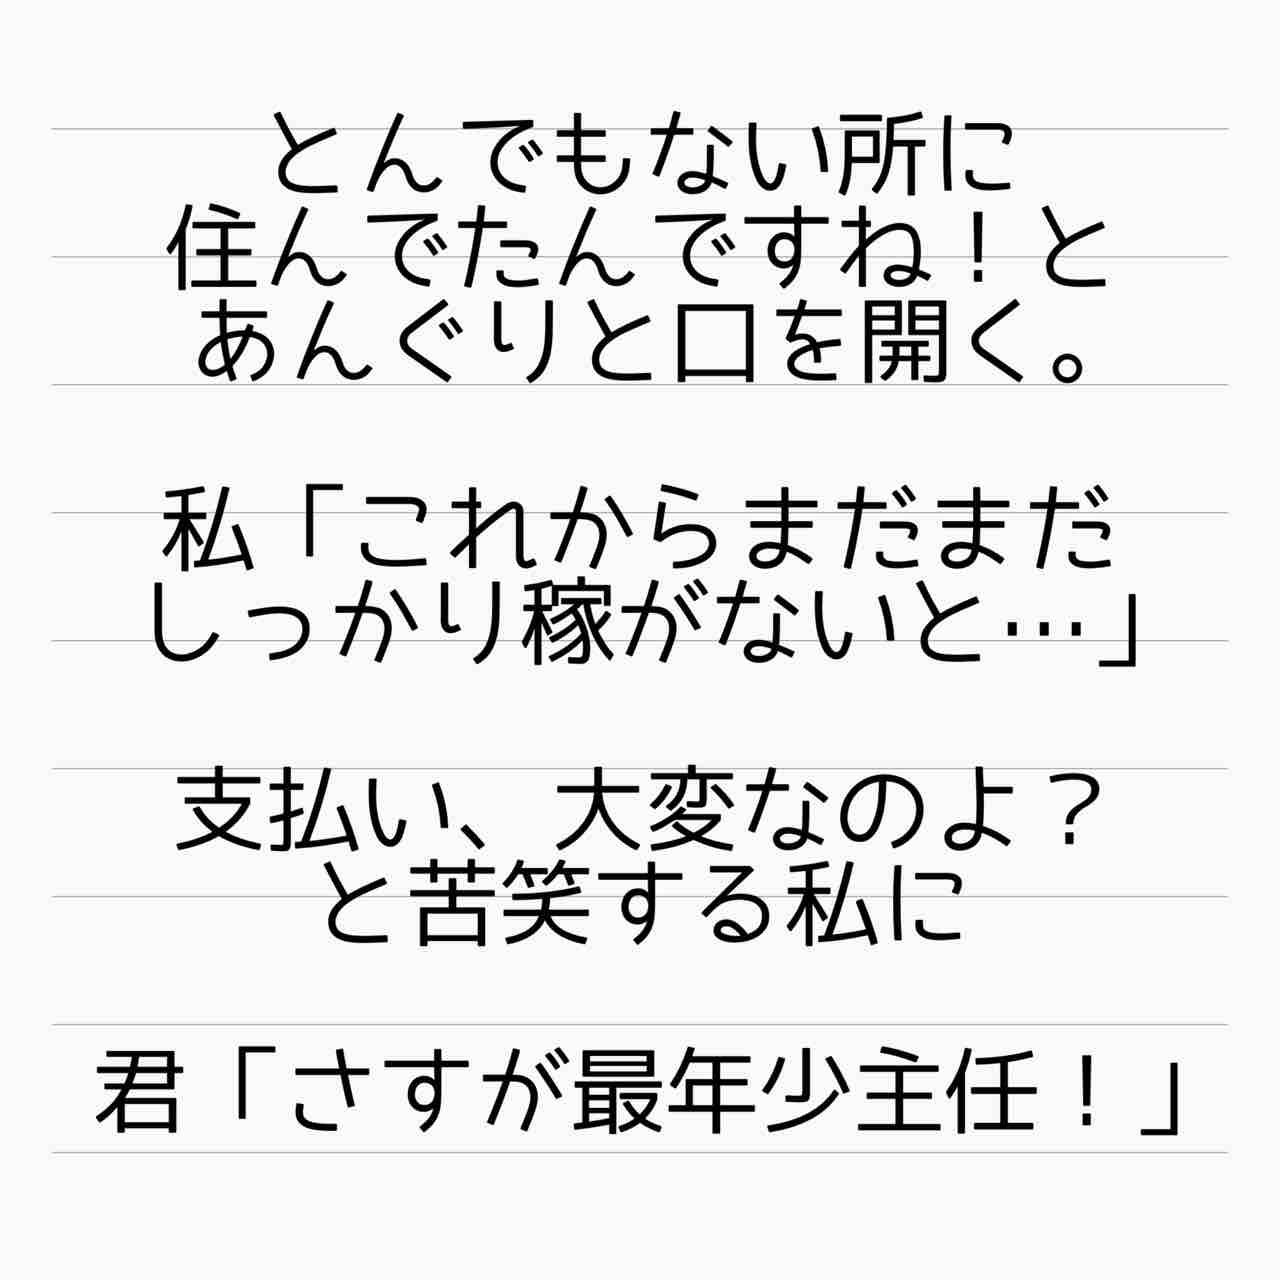 とんでもない所に
住んでたんですね！と
あんぐりと口を開く。
私「これからまだまだ
しっかり稼がないと…」
支払い、大変なのよ？
と苦笑する私に
君「さすが最年少主任！」